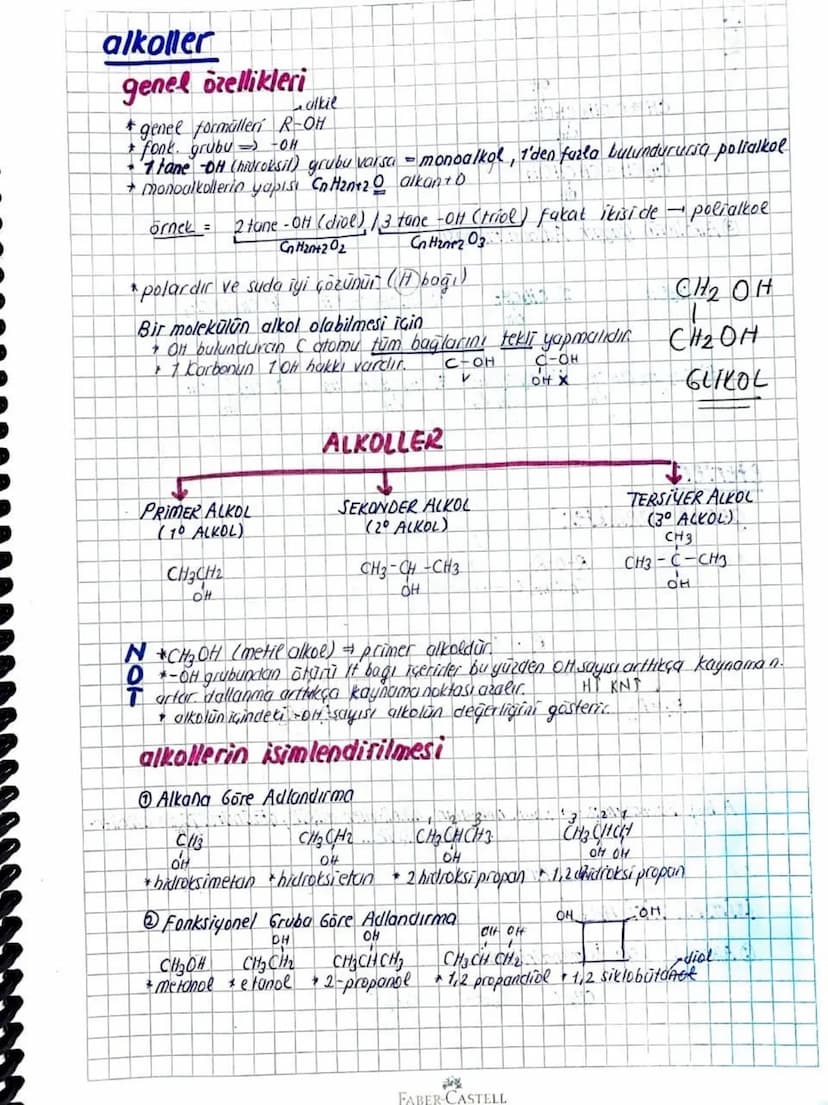 alkoller
genel özellikleri
* genel formülleri R-OH → alkil
* fonk. grubu => -OH
* 1 tane -OH (hidroksil) grubu varsa = monoalkol, 1'den fazla bulundurursa polialkol
* monoalkollerin yapısı CnH2n+2O alkan+O
örnek = 2 tane -OH (diol) / 3 tane -OH (triol) fakat ikisi de → polialkol
CnH2n+2O2 CnH2n+2O3
* polardır ve suda iyi çözünür (H bağı)
CH2 OH
CH2OH
GLİKOL
Bir molekülün alkol olabilmesi için
* OH bulunduran C atomu tüm bağlarını tekli yapmalıdır.
* 1 Karbonun 1 OH hakkı vardır. C-OH C-OH
✓ OH X
ALKOLLER
PRİMER ALKOL SEKONDER ALKOL TERSİYER ALKOL
(1° ALKOL) (2° ALKOL) (3° ALKOL)
CH3
CH3CH2 CH3-CH-CH3 CH3-C-CH3
OH OH OH
NOT
* CH3OH (metil alkol) → primer alkoldür.
* -OH grubundan ötürü H bağı içerirler bu yüzden OH sayısı arttıkça kaynama n.
artar. dallanma arttıkça kaynama noktası azalır. H↑ KN↑
* alkolün içindeki -OH sayısı alkolün değerliğini gösterir.
alkollerin isimlendirilmesi
① Alkana Göre Adlandırma
1 2 3 3 2 1
CH3 CH3CH2 CH3CHCH3 CH3CHCH
OH OH OH OH OH
* hidroksimetan * hidroksietan * 2 hidroksi propan * 1,2 dihidroksi propan
② Fonksiyonel Gruba Göre Adlandırma
OH OH OH OH OH OH
CH3OH CH3CH2 CH3CHCH3 CH3CH CH2
* metanol * etanol * 2-propanol * 1,2 propandiol * 1,2 siklobütandiol
FABER-CASTELL